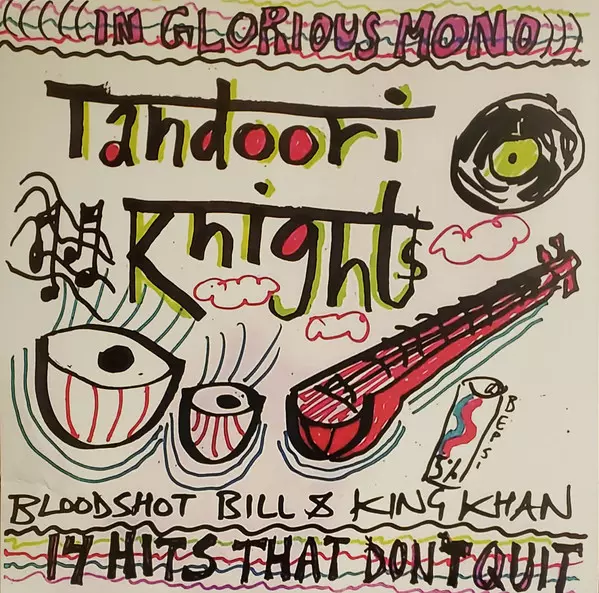 IN GLORIOUS MONO
Tandoori
Knights
BEPSI
5%
BLOODSHOT BILL & KING KHAN
14 HITS THAT DON'T QUIT